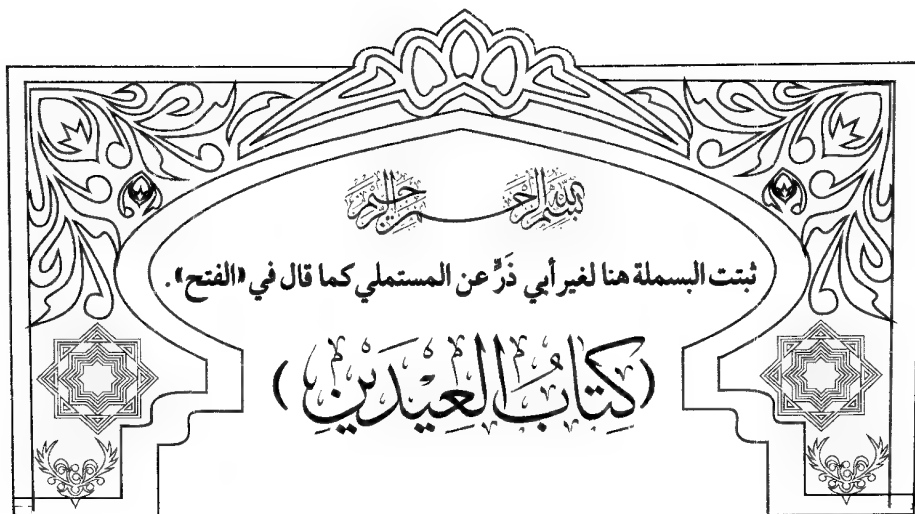 بسم الله الرحمن الرحيم
ثبتت البسملة هنا لغير أبي ذَرٍّ عن المستملي كما قال في «الفتح».
(كِتَابُ العِيْدَيْنِ)